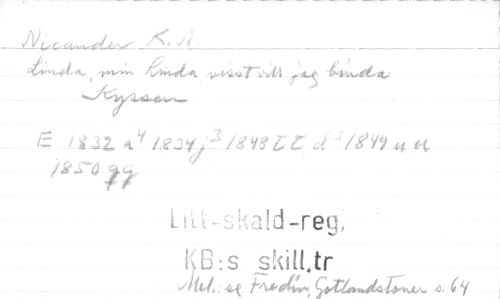 Nicander K. A.
Linda, min hinda, visst vill jag binda
Kyssen
E 1832 a⁴ 1834 j³ 1848 ττ, d² 1849 u u
1850 gg
Litt-skald-reg.
KB:s skill.tr
Mel.: se Fredin, Gotlandstoner s. 64